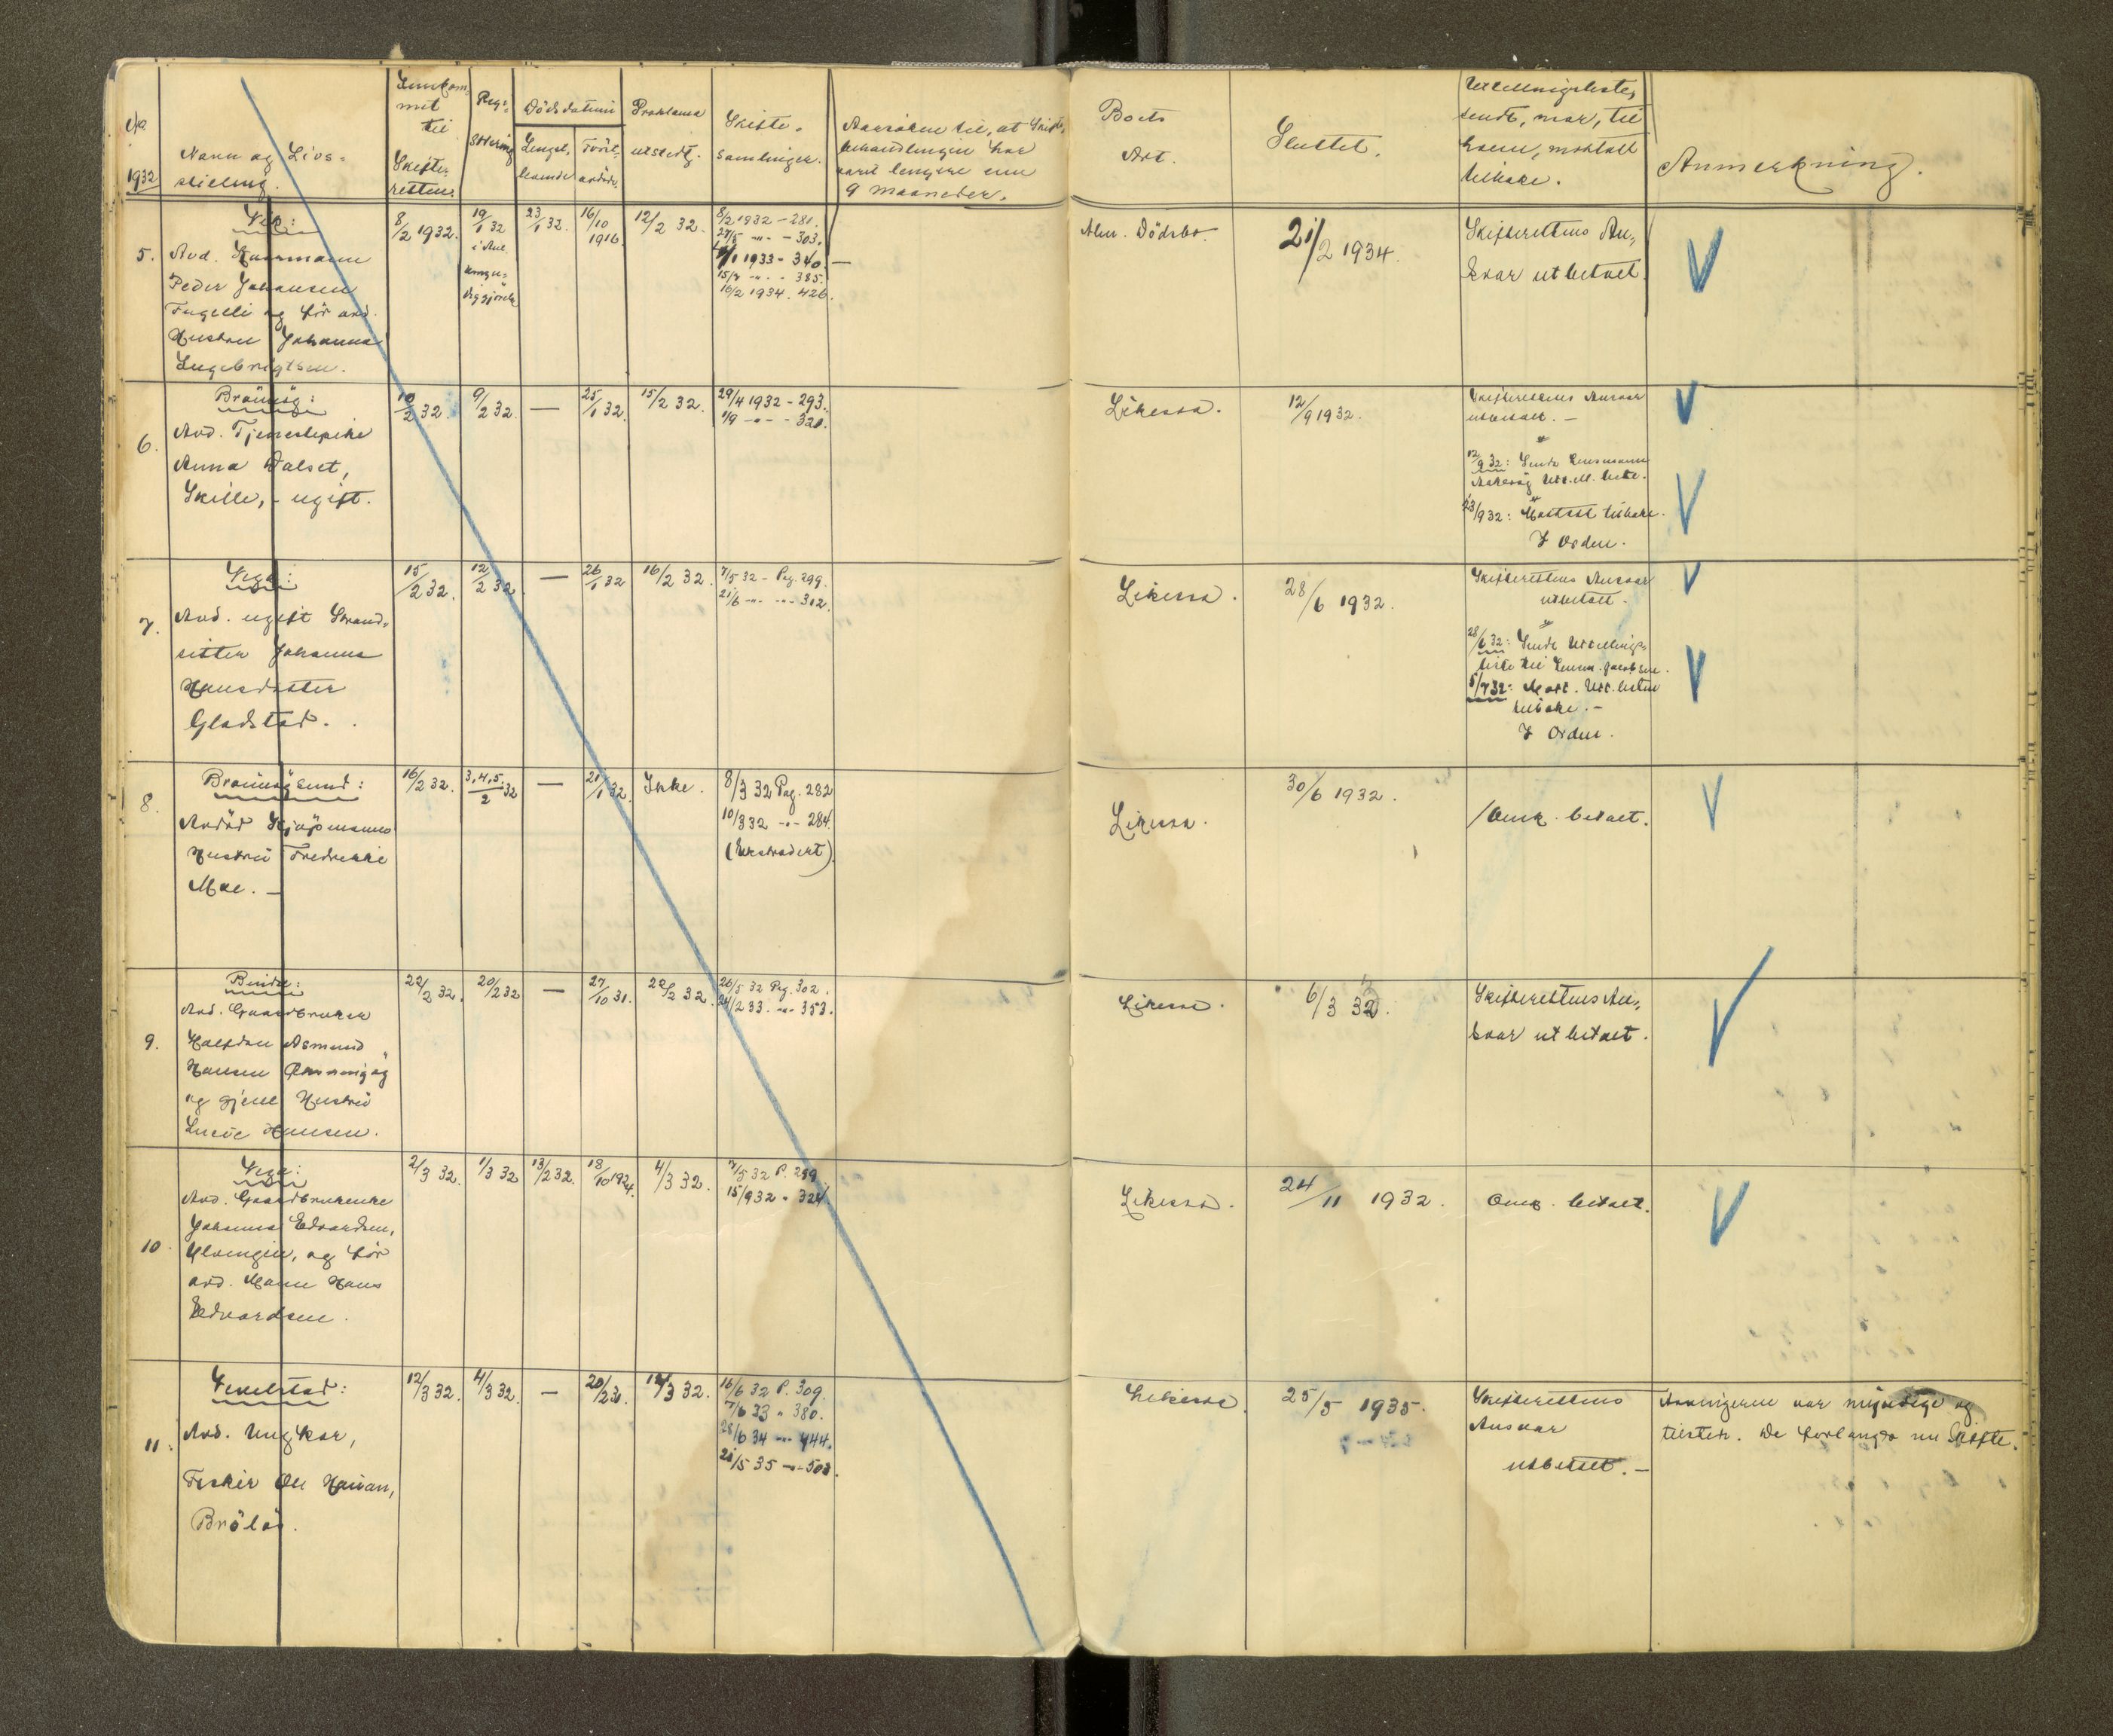 No
1932
Navn og Livs-
stilling.
Innkom-
met
til
Skifte-
retten.
Regi-
strering
Dödsdatum
Lengst-
levende
Först-
avdöde
Proklama
utstedt.
Skifte-
samlinger.
Aarsaken til, at Skifte-
behandlingen har
varet lengere enn
9 maaneder.
Boets
Art.
Sluttet.
Utlodningsliste,
sendt, naar, til
hvem, mottatt
tilbake.
Anmerkning.
5.
Vega:
Avd. Kaarmann
Peder Johansen
Fugelli og för avd.
Hustru Johanna
Ingebrigtsen.
8/2 1932.
19/1 32
23/1 32.
16/10
1916.
12/2 32.
8/2 1932 - 281.
27/5 -"- - 303.
1933 - 340. -
15/7 -"- - 385.
16/2 1934. 426.
Alm. Dödsbo.
21/2 1934.
Skifterettens An-
svar utbetalt.
6.
Brönnöy:
Avd. Tjenestepike
Anna Dalset,
Skille, - ugift.
10/2 32.
9/2 32.
—
25/1 32.
15/2 32.
29/4 1932 - 293.
1/9 -"- - 320.
Likesaa.
12/9 1932.
Skifterettens Ansvar
utbetalt. -
12/9 32: Sendt Lensmann
Utl. liste.
23/9 32: Mottatt tilbake.
I Orden.
7.
Vega:
Avd. ugift Strand-
sitter Johanna
Hansdatter
Gladstad.
15/2 32.
12/2 32.
—
26/1 32
16/2 32.
7/5 32 - Pag. 299.
21/6 -"- -"- 312.
Likesaa.
28/6 1932.
Skifterettens Ansvar
utbetalt.
28/6 32: Sendt Utlodnings-
liste til Lensm. Jacobsen.
5/7 32: Mott. Utl. listen
tilbake. -
I Orden.
8.
Brönnöysund:
Avdöd Kjöpmanns
Hustru Fredrikke
Moe. -
16/2 32.
3, 4, 5./2 32
—
21/1 32.
Ikke.
8/3 32 Pag. 282
10/3 32 -"- 284.
(Ekstradert)
Likesaa.
30/6 1932.
Omk. betalt.
9.
Bindal:
Avd. Gaardbruker
Halfdan Asmund
Hansen
og gjenl Hustru
Hansen.
22/2 32.
20/2 32
—
27/10 31.
22/2 32.
26/5 32 Pag. 302.
24/2 33. -"- 353.
Likesaa.
6/3 32.
Skifterettens An-
svar utbetalt.
10
Vega:
Avd. Gaardbrukerske
Johanna Edvardsen,
Ylvingen, og för
avd. Mann Hans
Edvardsen.
2/3 32.
1/3 32
13/2 32.
18/10 1924.
4/3 32.
7/5 32 P. 299
15/9 32 " 324
Likesaa.
24/11 1932.
Omk. betalt.
11.
Vevelstad:
Avd. Ungkar,
Fisker Ole
Brölös.
12/3 32.
4/3 32.
—
20/2 31.
12/3 32.
16/6 32 P. 309.
7/6 33 " 380.
28/6 34 -"- 444.
21/5 35 -"- 503.
Likesaa.
25/5 1935.
Skifterettens
Ansvar
utbetalt. -
Arvingerne var myndige og
tilstede. De forlangte nu Skifte.